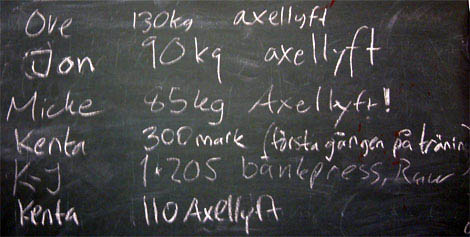 Ove 130kg axellyft
Jon 90kg axellyft
Micke 85kg Axellyft!
Kenta 300 mark (första gången på tränin
K-J 1*205 bänkpress, Raw
Kenta 110 Axellyft